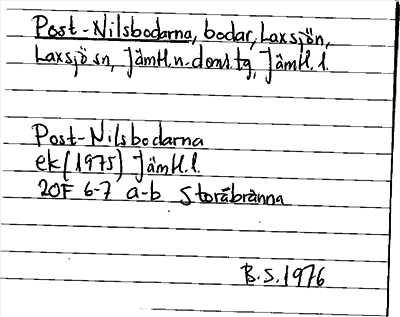 Post-Nilsbodarna, bodar, Laxsjön,
Laxsjö sn, Jämtl.n.doms.tg, Jämtl.l.
Post-Nilsbodarna
ek (1975) Jämtl.l.
20F 6-7 a-b Storåbränna
B.S. 1976